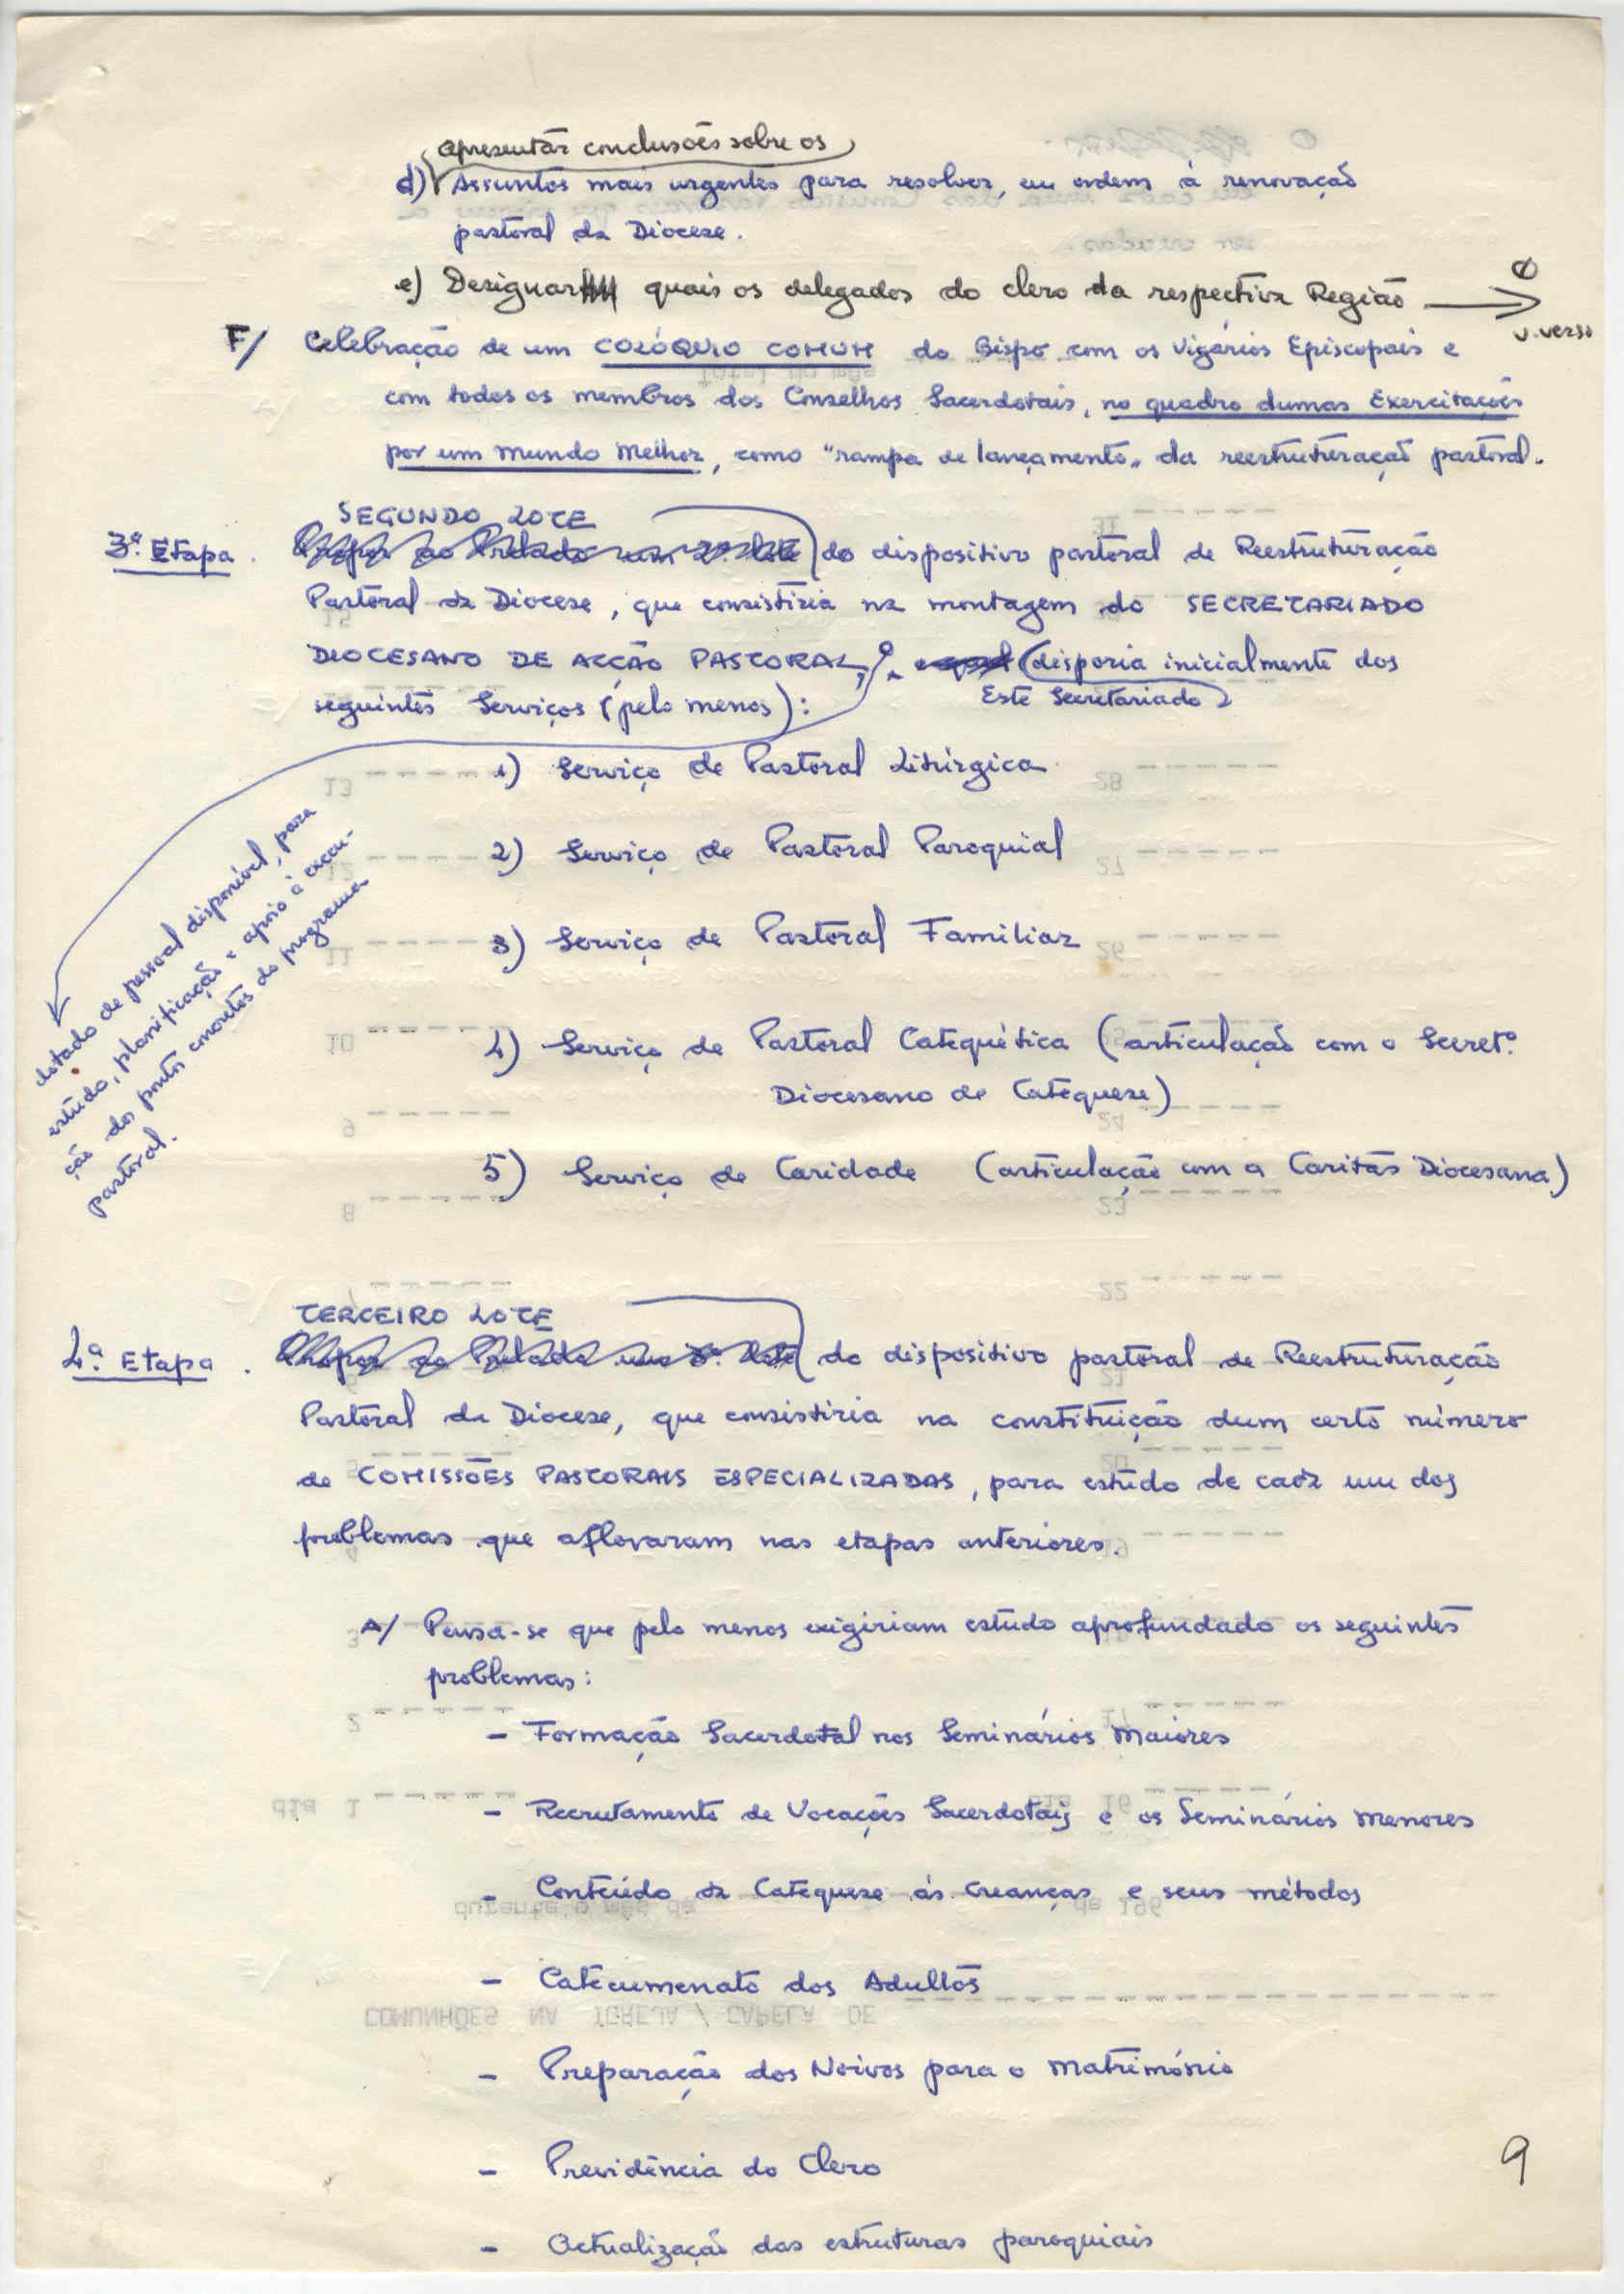 apresentar conclusões sobre os
d) Assuntos mais urgentes para resolver, em ordem à renovação
pastoral da Diocese.
e) Designar quais os delegados do clero da respectiva Região
v. verso
F/ Celebração de um COLÓQUIO COMUM do Bispo com os Vigários Episcopais e
com todos os membros dos Conselhos Sacerdotais, no quadro dumas Exercitações
por um Mundo Melhor, como "rampa de lançamento" da reestruturação pastoral.
SEGUNDO LOTE
3.ª Etapa. Propor ao Prelado um 2.º lote do dispositivo pastoral de Reestruturação
Pastoral da Diocese, que consistiria na montagem do SECRETARIADO
DIOCESANO DE ACÇÃO PASTORAL, o qual disporia inicialmente dos
Este Secretariado
seguintes Serviços (pelo menos):
1) Serviço de Pastoral Litúrgica
2) Serviço de Pastoral Paroquial
3) Serviço de Pastoral Familiar
4) Serviço de Pastoral Catequética (articulação com o Secret.º
Diocesano de Catequese)
5) Serviço de Caridade (articulação com a Caritas Diocesana)
dotado de pessoal disponível, para
estudo, planificação e apoio à execu-
ção dos pontos concretos do programa
pastoral.
TERCEIRO LOTE
4.ª Etapa. Propor ao Prelado um 3.º lote do dispositivo pastoral de Reestruturação
Pastoral da Diocese, que consistiria na constituição dum certo número
de COMISSÕES PASTORAIS ESPECIALIZADAS, para estudo de cada um dos
problemas que afloraram nas etapas anteriores.
A/ Pensa-se que pelo menos exigiriam estudo aprofundado os seguintes
problemas:
- Formação Sacerdotal nos Seminários Maiores
- Recrutamento de Vocações Sacerdotais e os Seminários Menores
- Conteúdo da Catequese às Crianças e seus métodos
- Catecumenato dos Adultos
- Preparação dos Noivos para o Matrimónio
- Previdência do Clero
- Actualização das estruturas paroquiais
9